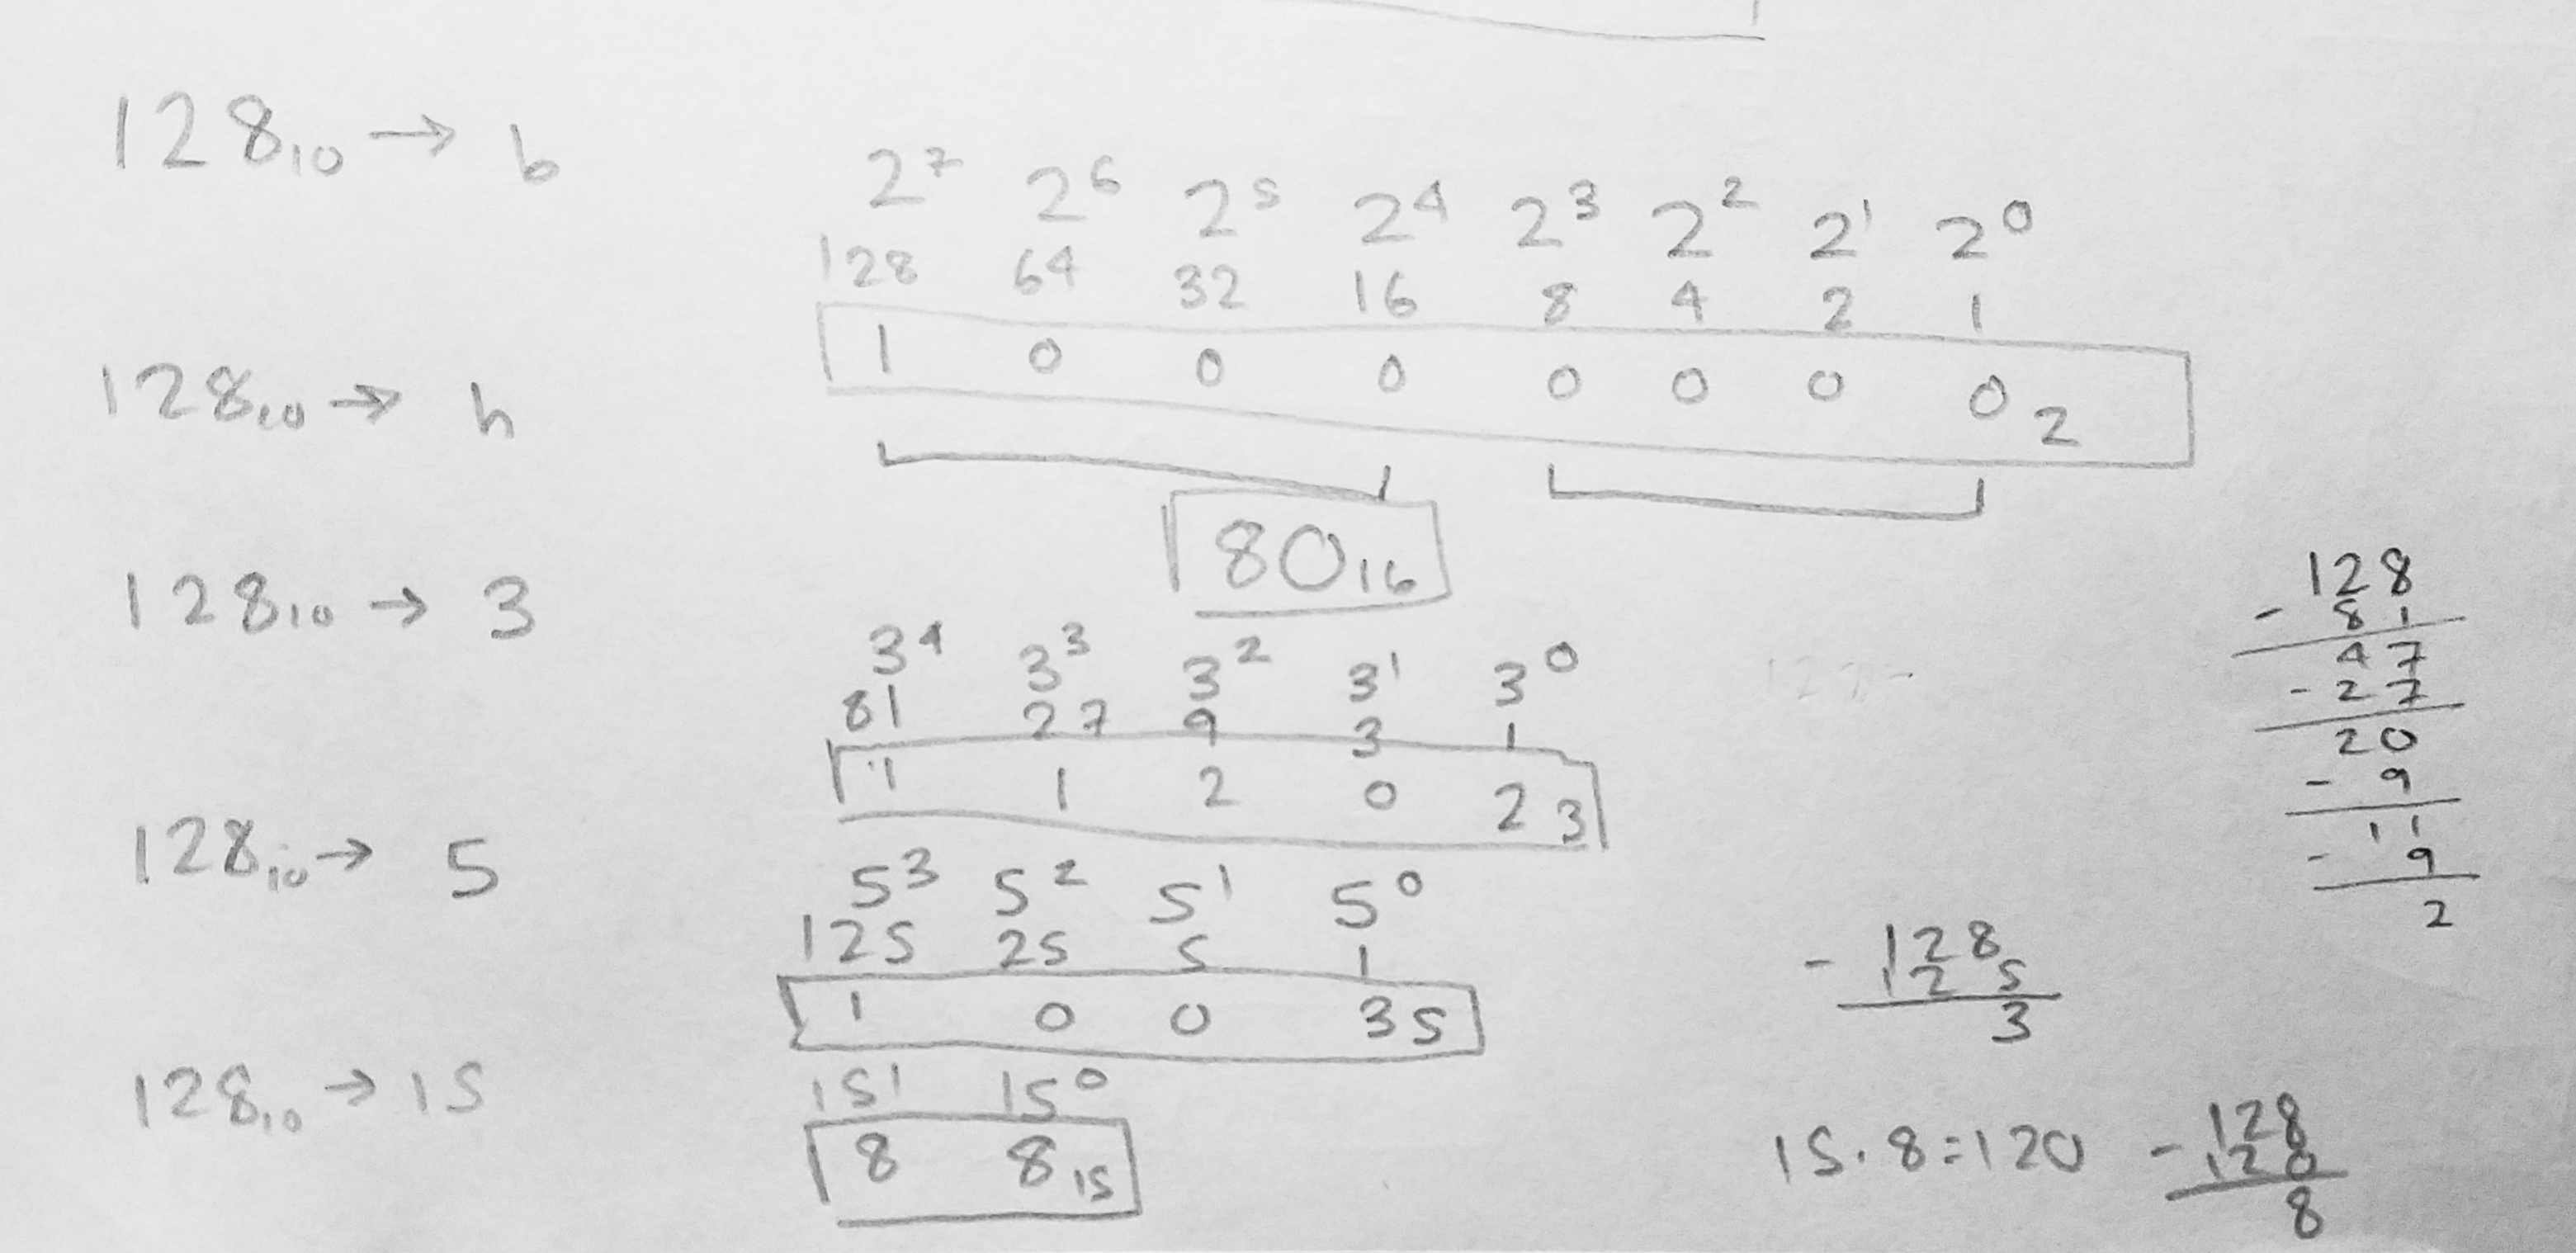 128₁₀ → b
2⁷ 2⁶ 2⁵ 2⁴ 2³ 2² 2¹ 2⁰
128 64 32 16 8 4 2 1
1 0 0 0 0 0 0 0₂
128₁₀ → h
80₁₆
128₁₀ → 3
3⁴ 3³ 3² 3¹ 3⁰
81 27 9 3 1
1 1 2 0 2₃
128
- 81
47
- 27
20
- 9
11
- 9
2
128₁₀ → 5
5³ 5² 5¹ 5⁰
125 25 5 1
1 0 0 3₅
- 128
125
3
128₁₀ → 15
15¹ 15⁰
8 8₁₅
15 · 8 = 120
- 128
120
8